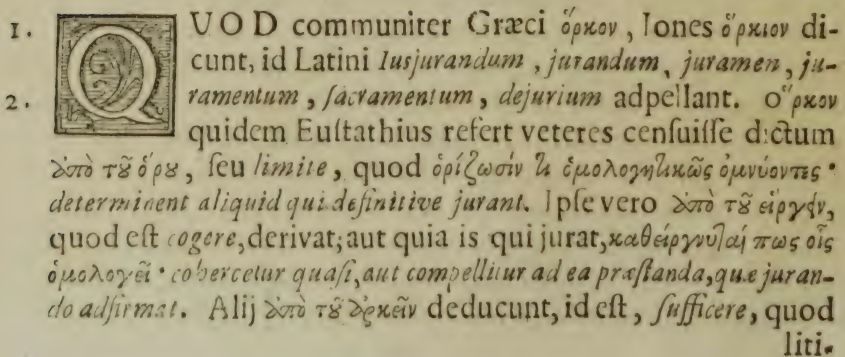 1. QUOD communiter Græci ὅρκον, Iones ὅρκιον di-
cunt, id Latini Iusjurandum, jurandum, juramen, ju-
2. ramentum, ſacramentum, dejurium adpellant. ὅρκον
quidem Euſtathius refert veteres cenſuiſſe dictum
ἀπὸ τοῦ ὅρου, ſeu limite, quod ὁρίζωσίν τι ὁμολογητικῶς ὀμνύοντες·
determinent aliquid qui definitive jurant. Ipſe vero ἀπὸ τοῦ εἴργειν,
quod eſt cogere, derivat; aut quia is qui jurat, καθείργνυταί πως οἷς
ὁμολογεῖ· cohercetur quaſi, aut compellitur ad ea præſtanda, quæ juran-
do adfirmat. Alij ἀπὸ τοῦ ἀρκεῖν deducunt, id eſt, ſufficere, quod
liti-